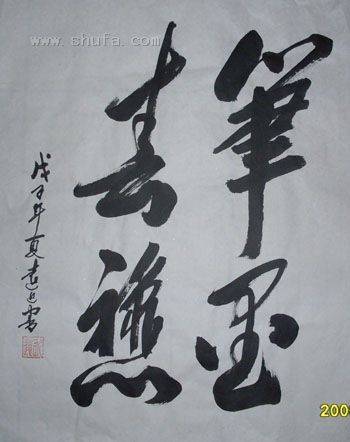 www.shufa.com
筆墨
春穐
戊子年夏
書
200